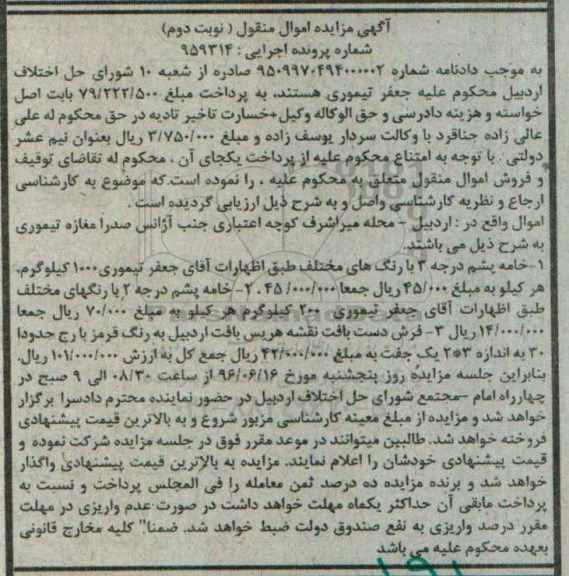 آگهی مزایده اموال منقول ( نوبت دوم)
شماره پرونده اجرایی : ۹۵۹۳۱۴
به موجب دادنامه شماره ۹۵۰۹۹۷۰۴۹۴۰۰۰۰۰۲ صادره از شعبه ۱۰ شورای حل اختلاف
اردبیل محکوم علیه جعفر تیموری هستند، به پرداخت مبلغ ۷۹/۲۲۲/۵۰۰ بابت اصل
خواسته و هزینه دادرسی و حق الوکاله وکیل+خسارت تاخیر تادیه در حق محکوم له علی
عالی زاده جناقرد با وکالت سردار یوسف زاده و مبلغ ۳/۷۵۰/۰۰۰ ریال بعنوان نیم عشر
دولتی. با توجه به امتناع محکوم علیه از پرداخت یکجای آن ، محکوم له تقاضای توقیف
و فروش اموال منقول متعلق به محکوم علیه ، را نموده است.که موضوع به کارشناسی
ارجاع و نظریه کارشناسی واصل و به شرح ذیل ارزیابی گردیده است .
اموال واقع در : اردبیل – محله میراشرف کوچه اعتباری جنب آژانس صدرا مغازه تیموری
به شرح ذیل می باشند.
۱-خامه پشم درجه ۳ با رنگ های مختلف طبق اظهارات آقای جعفر تیموری۱۰۰۰ کیلوگرم.
هر کیلو به مبلغ ۴۵/۰۰۰ ریال جمعا ۴۵/۰۰۰/۰۰۰ .۲- خامه پشم درجه ۲ با رنگهای مختلف
طبق اظهارات آقای جعفر تیموری ۲۰۰ کیلوگرم هر کیلو به مبلغ ۷۰/۰۰۰ ریال جمعا
۱۴/۰۰۰/۰۰۰ ریال ۳- فرش دست بافت نقشه هریس بافت اردبیل به رنگ قرمز با رج حدودا
۳۰ به اندازه ۳*۲ یک جفت به مبلغ ۴۲/۰۰۰/۰۰۰ ریال جمع کل به ارزش ۱۰۱/۰۰۰/۰۰۰ ریال.
بنابراین جلسه مزایده روز پنجشنبه مورخ ۹۶/۰۶/۱۶ از ساعت ۰۸/۳۰ الی ۹ صبح در
چهارراه امام –مجتمع شورای حل اختلاف اردبیل در حضور نماینده محترم دادسرا برگزار
خواهد شد و مزایده از مبلغ معینه کارشناسی مزبور شروع و به بالاترین قیمت پیشنهادی
فروخته خواهد شد. طالبین میتوانند در موعد مقرر فوق در جلسه مزایده شرکت نموده و
قیمت پیشنهادی خودشان را اعلام نمایند. مزایده به بالاترین قیمت پیشنهادی واگذار
خواهد شد و برنده مزایده ده درصد ثمن معامله را فی المجلس پرداخت و نسبت به
پرداخت مابقی آن حداکثر یکماه مهلت خواهد داشت در صورت عدم واریزی در مهلت
مقرر درصد واریزی به نفع صندوق دولت ضبط خواهد شد. ضمنا" کلیه مخارج قانونی
بعهده محکوم علیه می باشد